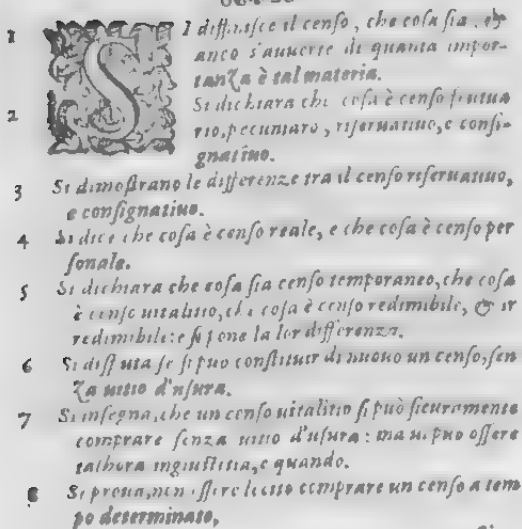 1 SI diffinisce il censo, che cosa sia, &
anco s'auuerte di quanta impor-
tanza è tal materia.
2 Si dichiara che cosa è censo fruttua
rio, pecuniaro, riseruatiuo, e consi-
gnatiuo.
3 Si dimostrano le differenze tra il censo riseruatiuo,
e consignatiuo.
4 Si dice che cosa è censo reale, e che cosa è censo per
sonale.
5 Si dichiara che cosa sia censo temporaneo, che cosa
è censo uitalitio, che cosa è censo redimibile, & ir
redimibile: e si pone la lor differenza.
6 Si disputa se si puo constituir di nuouo un censo, sen
za uitio d'usura.
7 Si insegna, che un censo uitalitio si può sicuramente
comprare senza uitio d'usura: ma ui puo essere
talhora ingiustitia, e quando.
8 Si proua, non essere lecito comprare un censo a tem
po determinato,